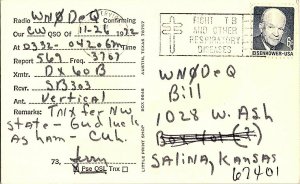 Radio WNØDeQ Confirming
Our CW QSO of 11-26 1972
At 0332-0420 GMT
Report 569 Freq. 3707
Xmtr. DX 60B
Rcvr. SB303
Ant. Vertical
Remarks: TNX fer NW
State - Gud luck
As ham - CUL.
73, Jerry
Pse QSL Tnx
LITTLE PRINT SHOP BOX 9848 AUSTIN, TEXAS 78757
FIGHT TB
AND OTHER
RESPIRATORY
DISEASES
EISENHOWER · USA
WNØDeQ
Bill
1028 W. Ash
Salina, Kansas
67401